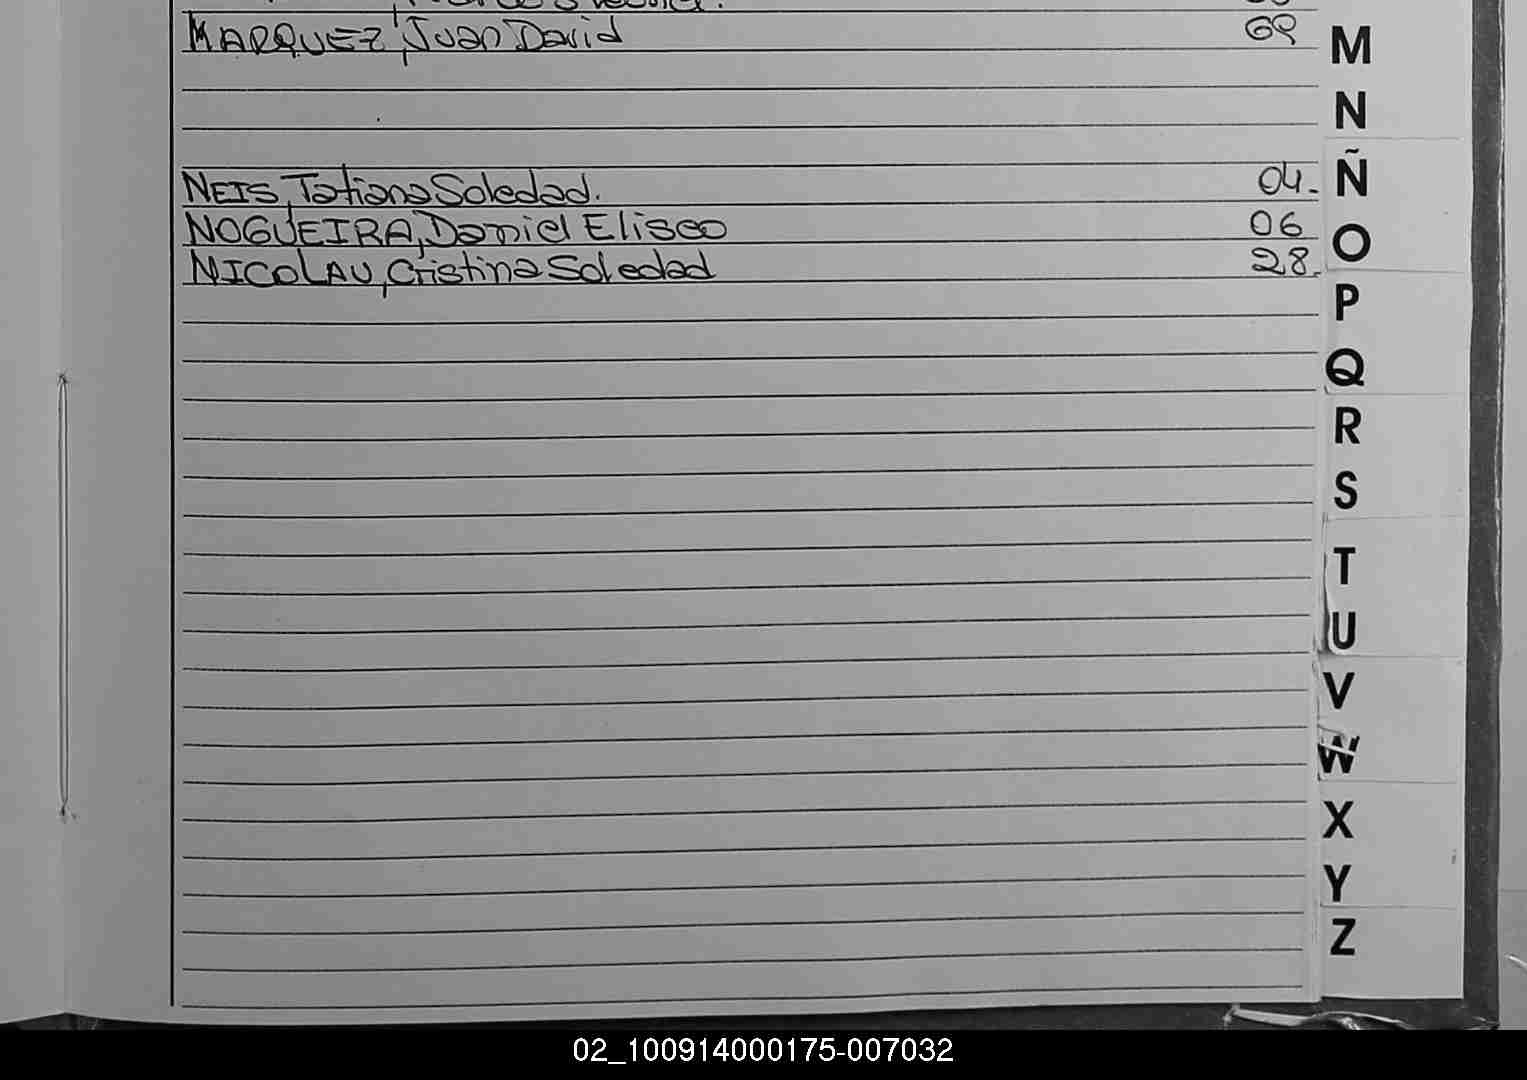 MARQUEZ, Juan David 69
NEIS, Tatiana Soledad. 04.
NOGUEIRA, Daniel Eliseo 06
NICOLAU, Cristina Soledad 28.
M
N
Ñ
O
P
Q
R
S
T
U
V
W
X
Y
Z
02_100914000175-007032